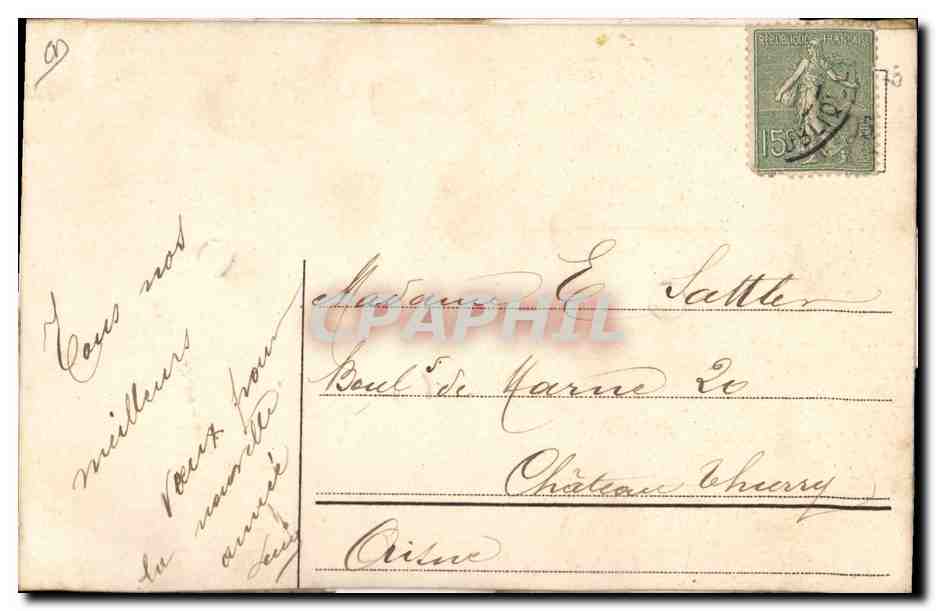 Tous nos
meilleurs
vœux pour
la nouvelle
année
Madame E Sattler
Boul.d de Marne 20
Château Thierry
Aisne
REPUBLIQUE FRANÇAISE
15c
CPAPHIL